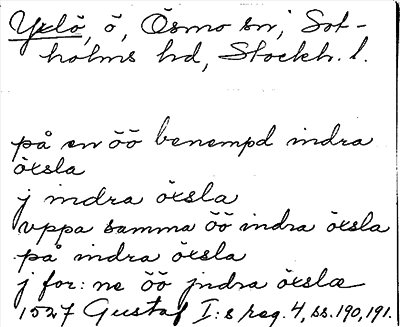 Yxlö, ö, Ösmo sn, Sot-
holms hd, Stockh. l.
på en öö benempd indra
öxsla
j indra öxsla
vppa samma öö indra öxsla
på indra öxsla
j for: ne öö jndra öxslæ
1527 Gustaf I:s reg. 4, ss. 190, 191.